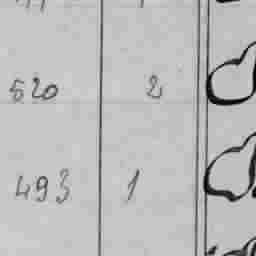 520 2
493 1